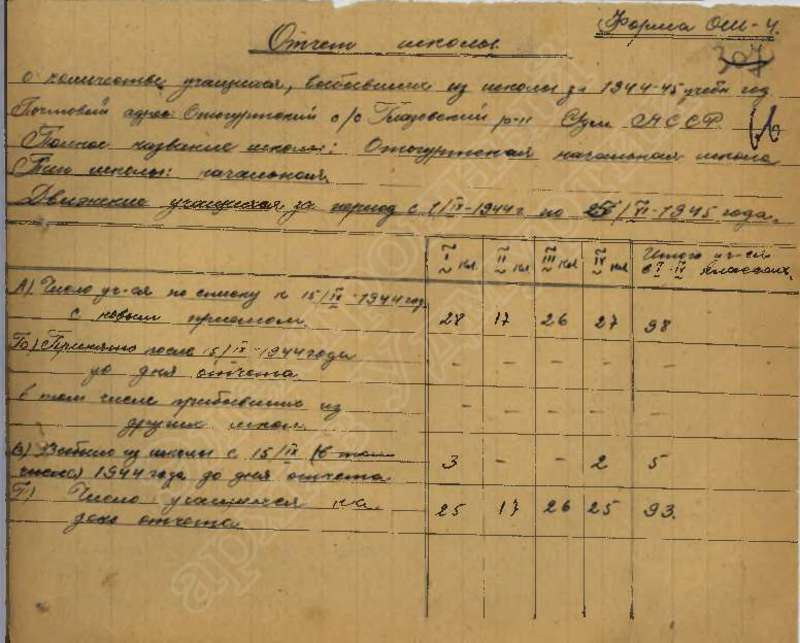 Форма ОШ-4.
307
Отчет школы.
о количестве учащихся, выбывших из школы за 1944-45 учебн год
Почтовый адрес: Отогуртский с/с Глазовский р-н Удм АССР
Полное название школы: Отогуртская начальная школа
Тип школы: начальная.
Движение учащихся за период с 1/IX-1944 г. по 25/VI-1945 года.
I кл. II кл. III кл. IV кл. Итого уч-ся в I-IV классах.
А) Число уч-ся по списку к 15/IX-1944 год.
с новым приемом. 28 17 26 27 98
Б) Принято после 15/IX-1944 года
до дня отчета - - - - -
в том числе прибывших из
других школ. - - - - -
В) Выбыло из школы с 15/IX (в том
числе) 1944 года до дня отчета 3 - - 2 5
Г) Число учащихся на
день отчета. 25 17 26 25 93.